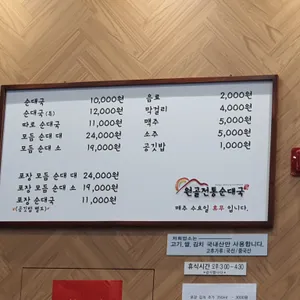 순대국 10,000원
순대국 (특) 12,000원
따로 순대국 11,000원
모듬 순대 대 24,000원
모듬 순대 소 19,000원
포장 모듬 순대 대 24,000원
포장 모듬 순대 소 19,000원
포장 순대국 11,000원
(공깃밥 별도)
음료 2,000원
막걸리 4,000원
맥주 5,000원
소주 5,000원
공깃밥 1,000원
원골전통순대국
매주 수요일 휴무 입니다.
저희업소는
고기, 쌀, 김치 국내산만 사용합니다.
고추가루: 국산/중국산
휴식시간 오후 3:00 - 4:30